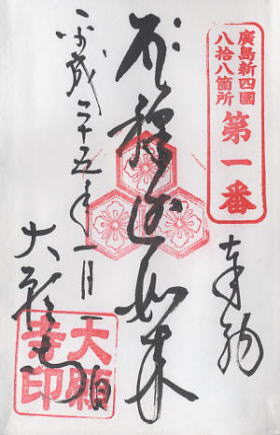 廣島新四國
八拾八箇所
第一番
奉納
釋迦如来
平成二十五年一月一日
大願寺
大願
寺印